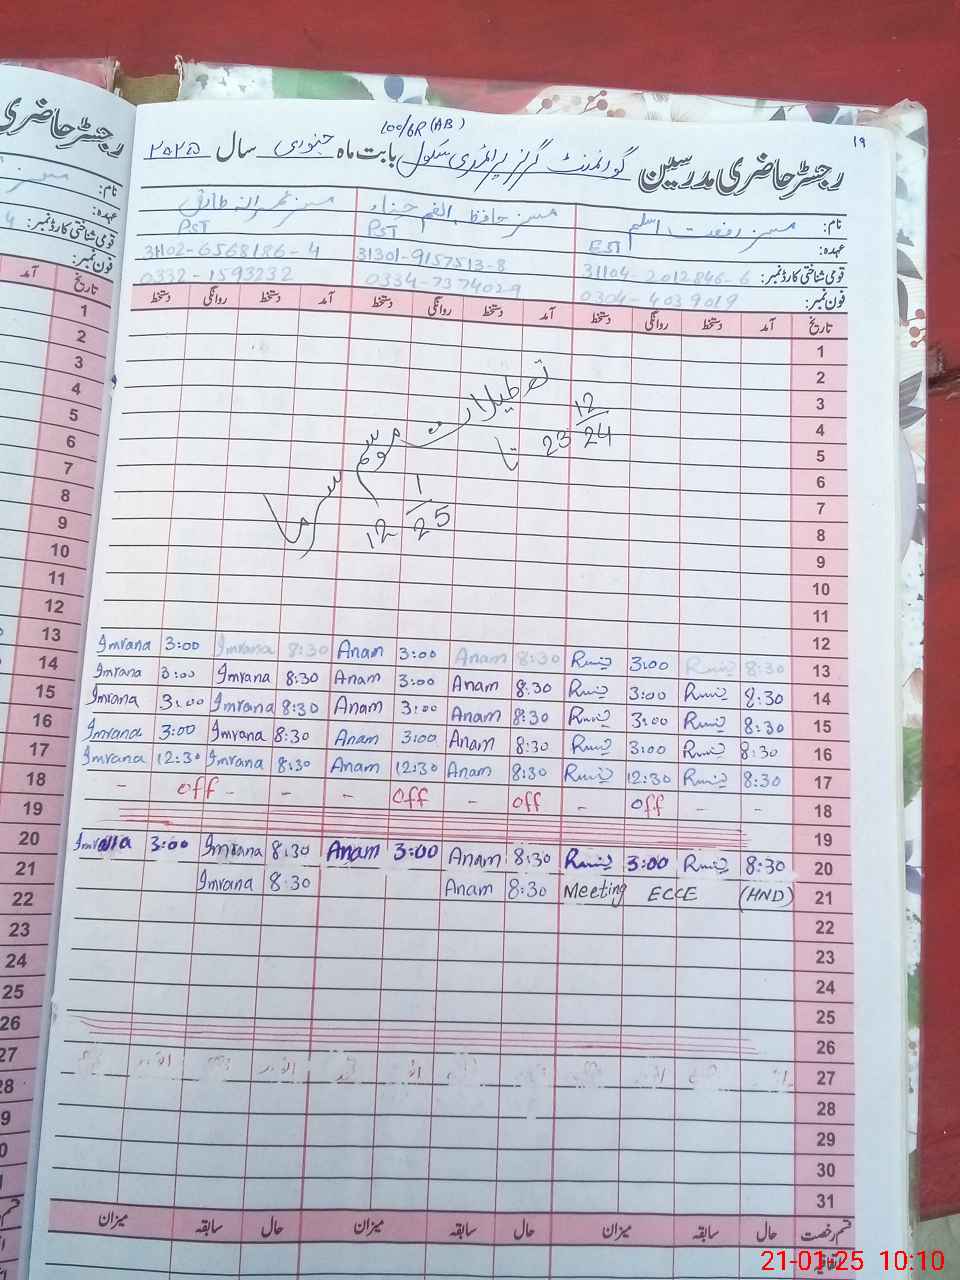 ۱۹
100/6R (AB)
رجسٹر حاضری مدرسین گورنمنٹ گرلز پرائمری سکول بابت ماہ جنوری سال ۲۰۲۵
رجسٹر حاضری
نام: مسز رفعت اسلم مسز حافظہ انعم مسز عمرانہ
عہدہ: EST PST PST
قومی شناختی کارڈ نمبر: 31104-2012846-6 31301-9157513-8 31102-6568186-4
فون نمبر: 0304-4039019 0334-7374029 0332-1593232
نام:
عہدہ:
قومی شناختی کارڈ نمبر:
فون نمبر:
تاریخ آمد دستخط روانگی دستخط آمد دستخط روانگی دستخط آمد دستخط روانگی دستخط
تاریخ آمد
1
2
3
4
5
6
7
8
9
10
11
12
تعطیلات موسم سرما
23 12/24 تا
12 1/25
Imrana 3:00 Imrana 8:30 Anam 3:00 Anam 8:30 3:00 8:30 13
Imrana 3:00 Imrana 8:30 Anam 3:00 Anam 8:30 3:00 8:30 14
Imrana 3:00 Imrana 8:30 Anam 3:00 Anam 8:30 3:00 8:30 15
Imrana 3:00 Imrana 8:30 Anam 3:00 Anam 8:30 3:00 8:30 16
Imrana 12:30 Imrana 8:30 Anam 12:30 Anam 8:30 12:30 8:30 17
- off - - - off - off - off - - 18
19
Imrana 3:00 Imrana 8:30 Anam 3:00 Anam 8:30 3:00 8:30 20
Imrana 8:30 Anam 8:30 Meeting ECCE (HND) 21
22
23
24
25
26
27
28
29
30
31
قسم رخصت حال سابقہ میزان حال سابقہ میزان حال سابقہ میزان
اتفاقیہ
1
2
3
4
5
6
7
8
9
10
11
12
13
14
15
16
17
18
19
20
21
22
23
24
25
26
27
28
21-01-25 10:10